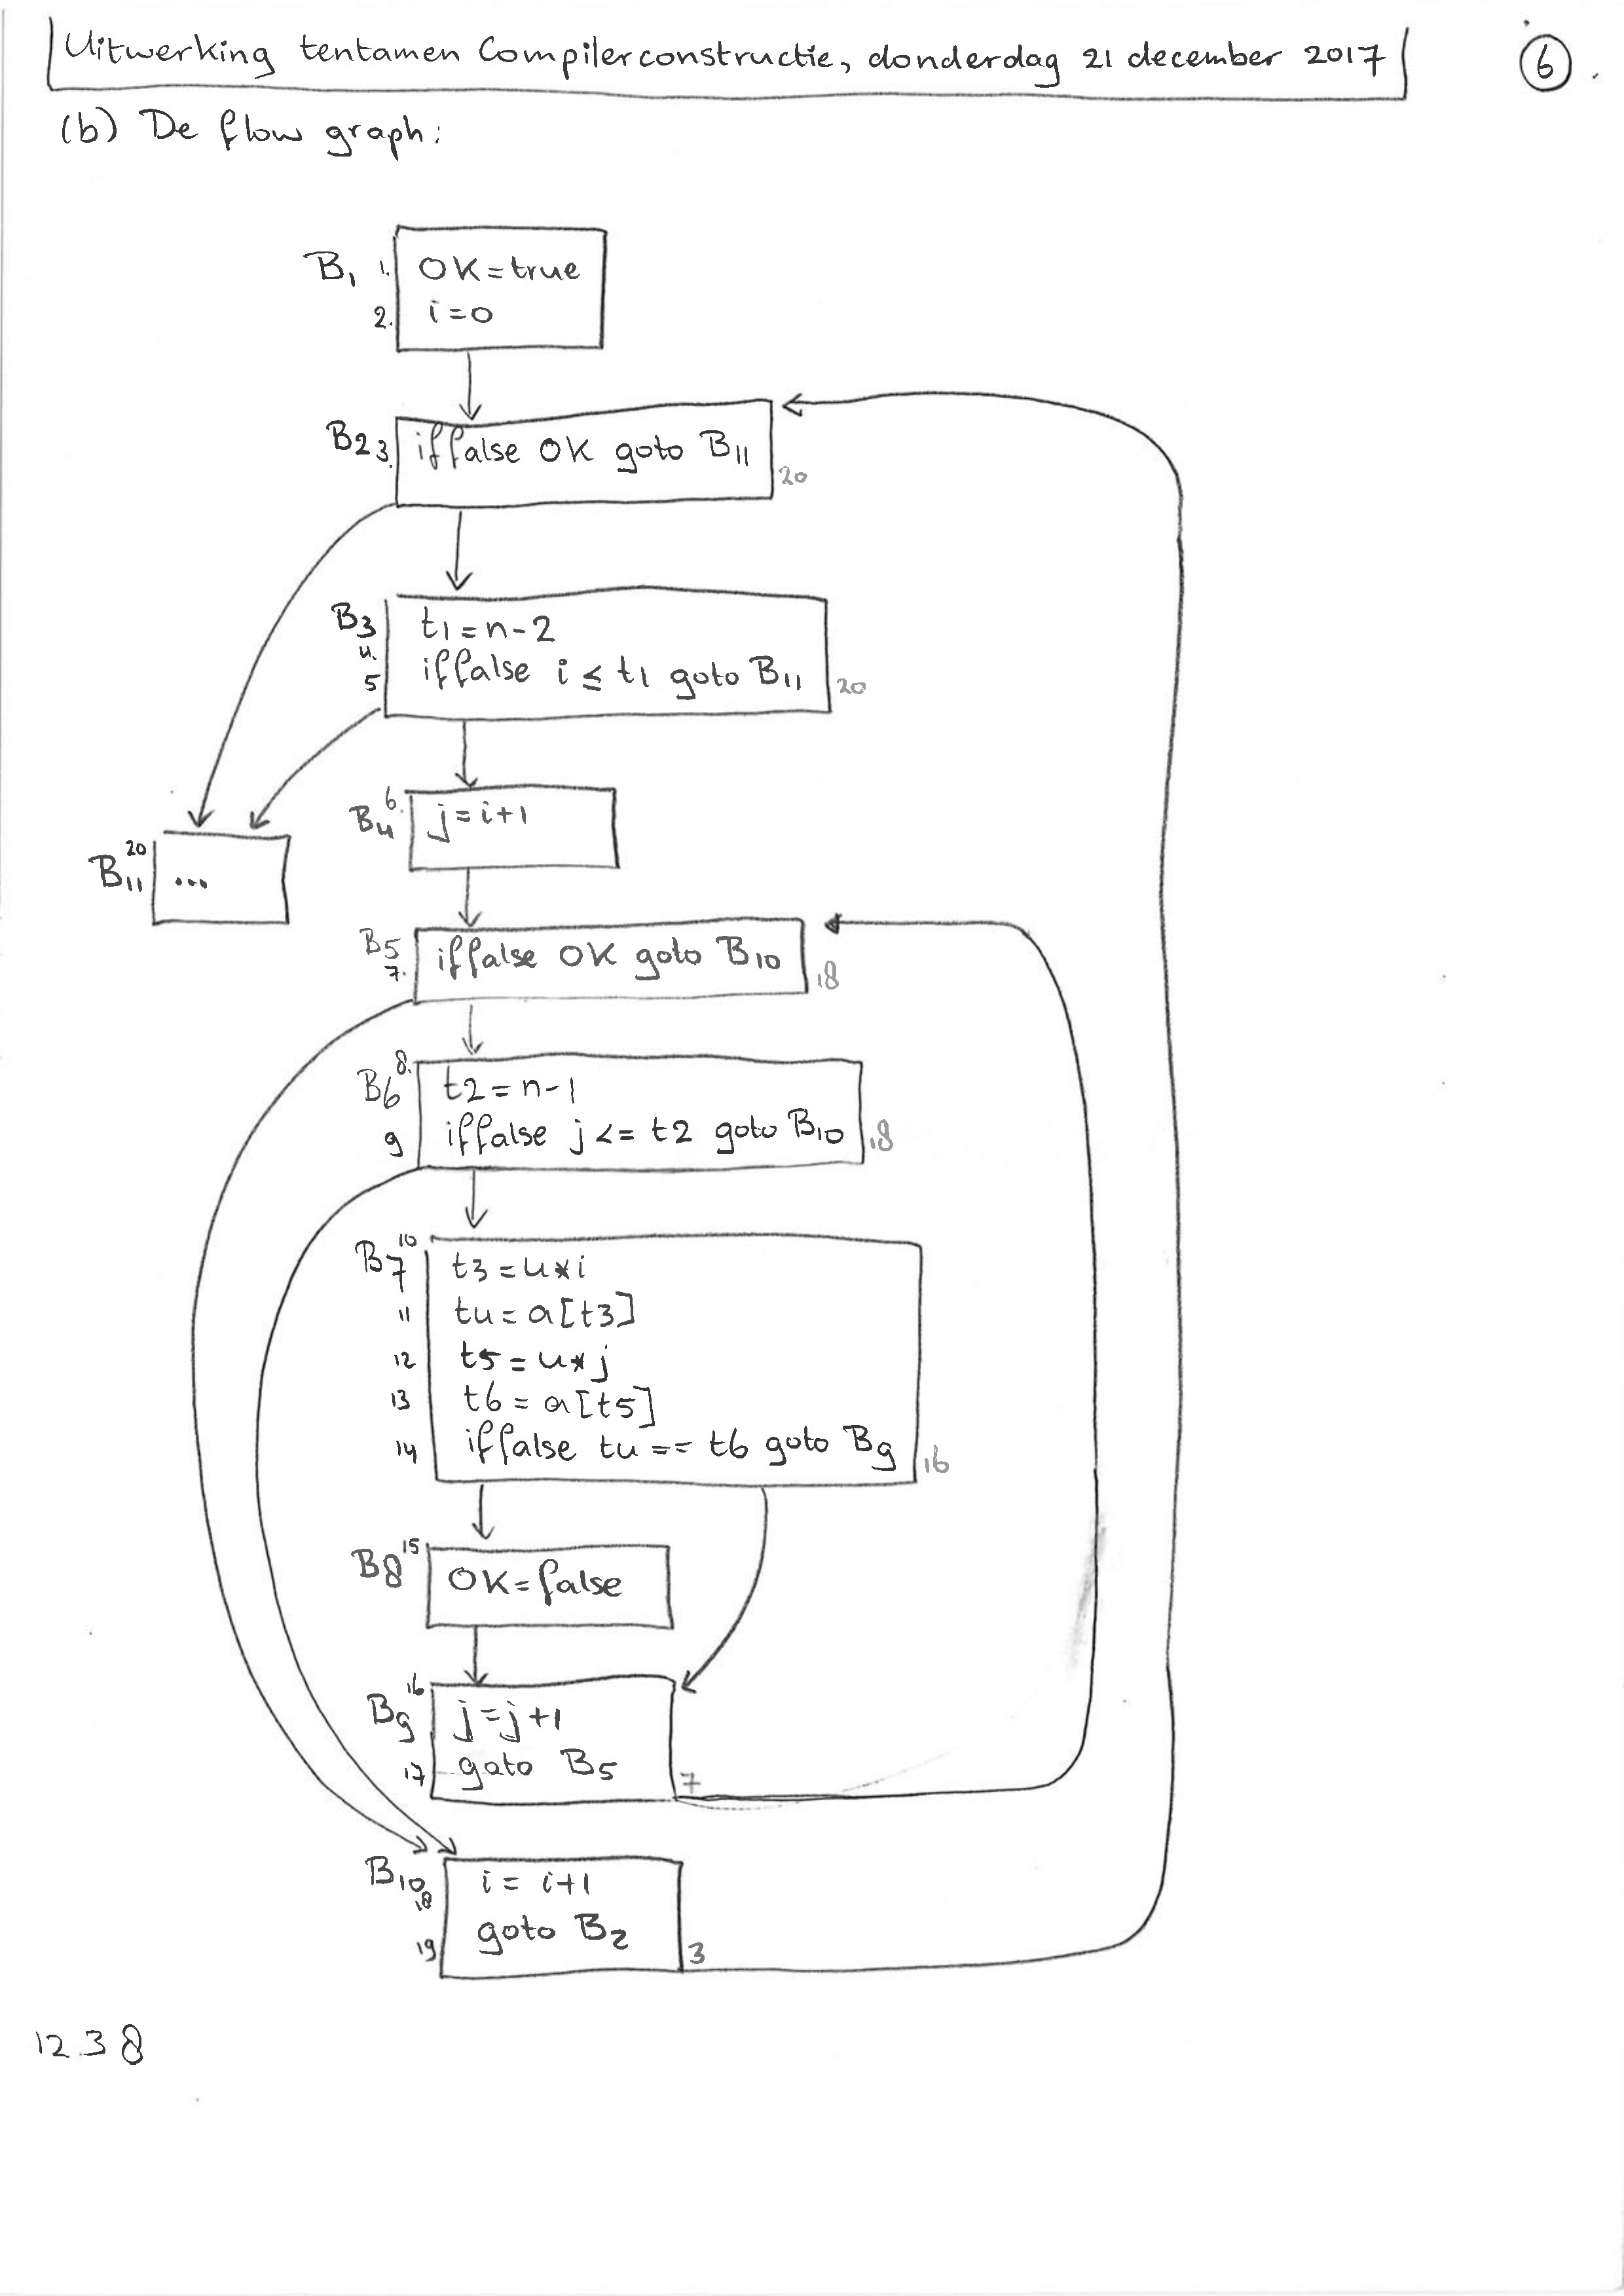 Uitwerking tentamen Compilerconstructie, donderdag 21 december 2017
6
(b) De flow graph:
B1 1. OK=true
2. i=0
B2 3. iffalse OK goto B11 20
B3 t1=n-2
4.
5 iffalse i ≤ t1 goto B11 20
B4 6. j=i+1
B11 20 ...
B5 iffalse OK goto B10 18
7.
B6 8. t2=n-1
9 iffalse j <= t2 goto B10 18
B7 10 t3=4*i
11 t4=a[t3]
12 t5=4*j
13 t6=a[t5]
14 iffalse t4 == t6 goto B9 16
B8 15 OK=false
B9 16 j=j+1
17 goto B5 7
B10 18 i= i+1
19 goto B2 3
1238